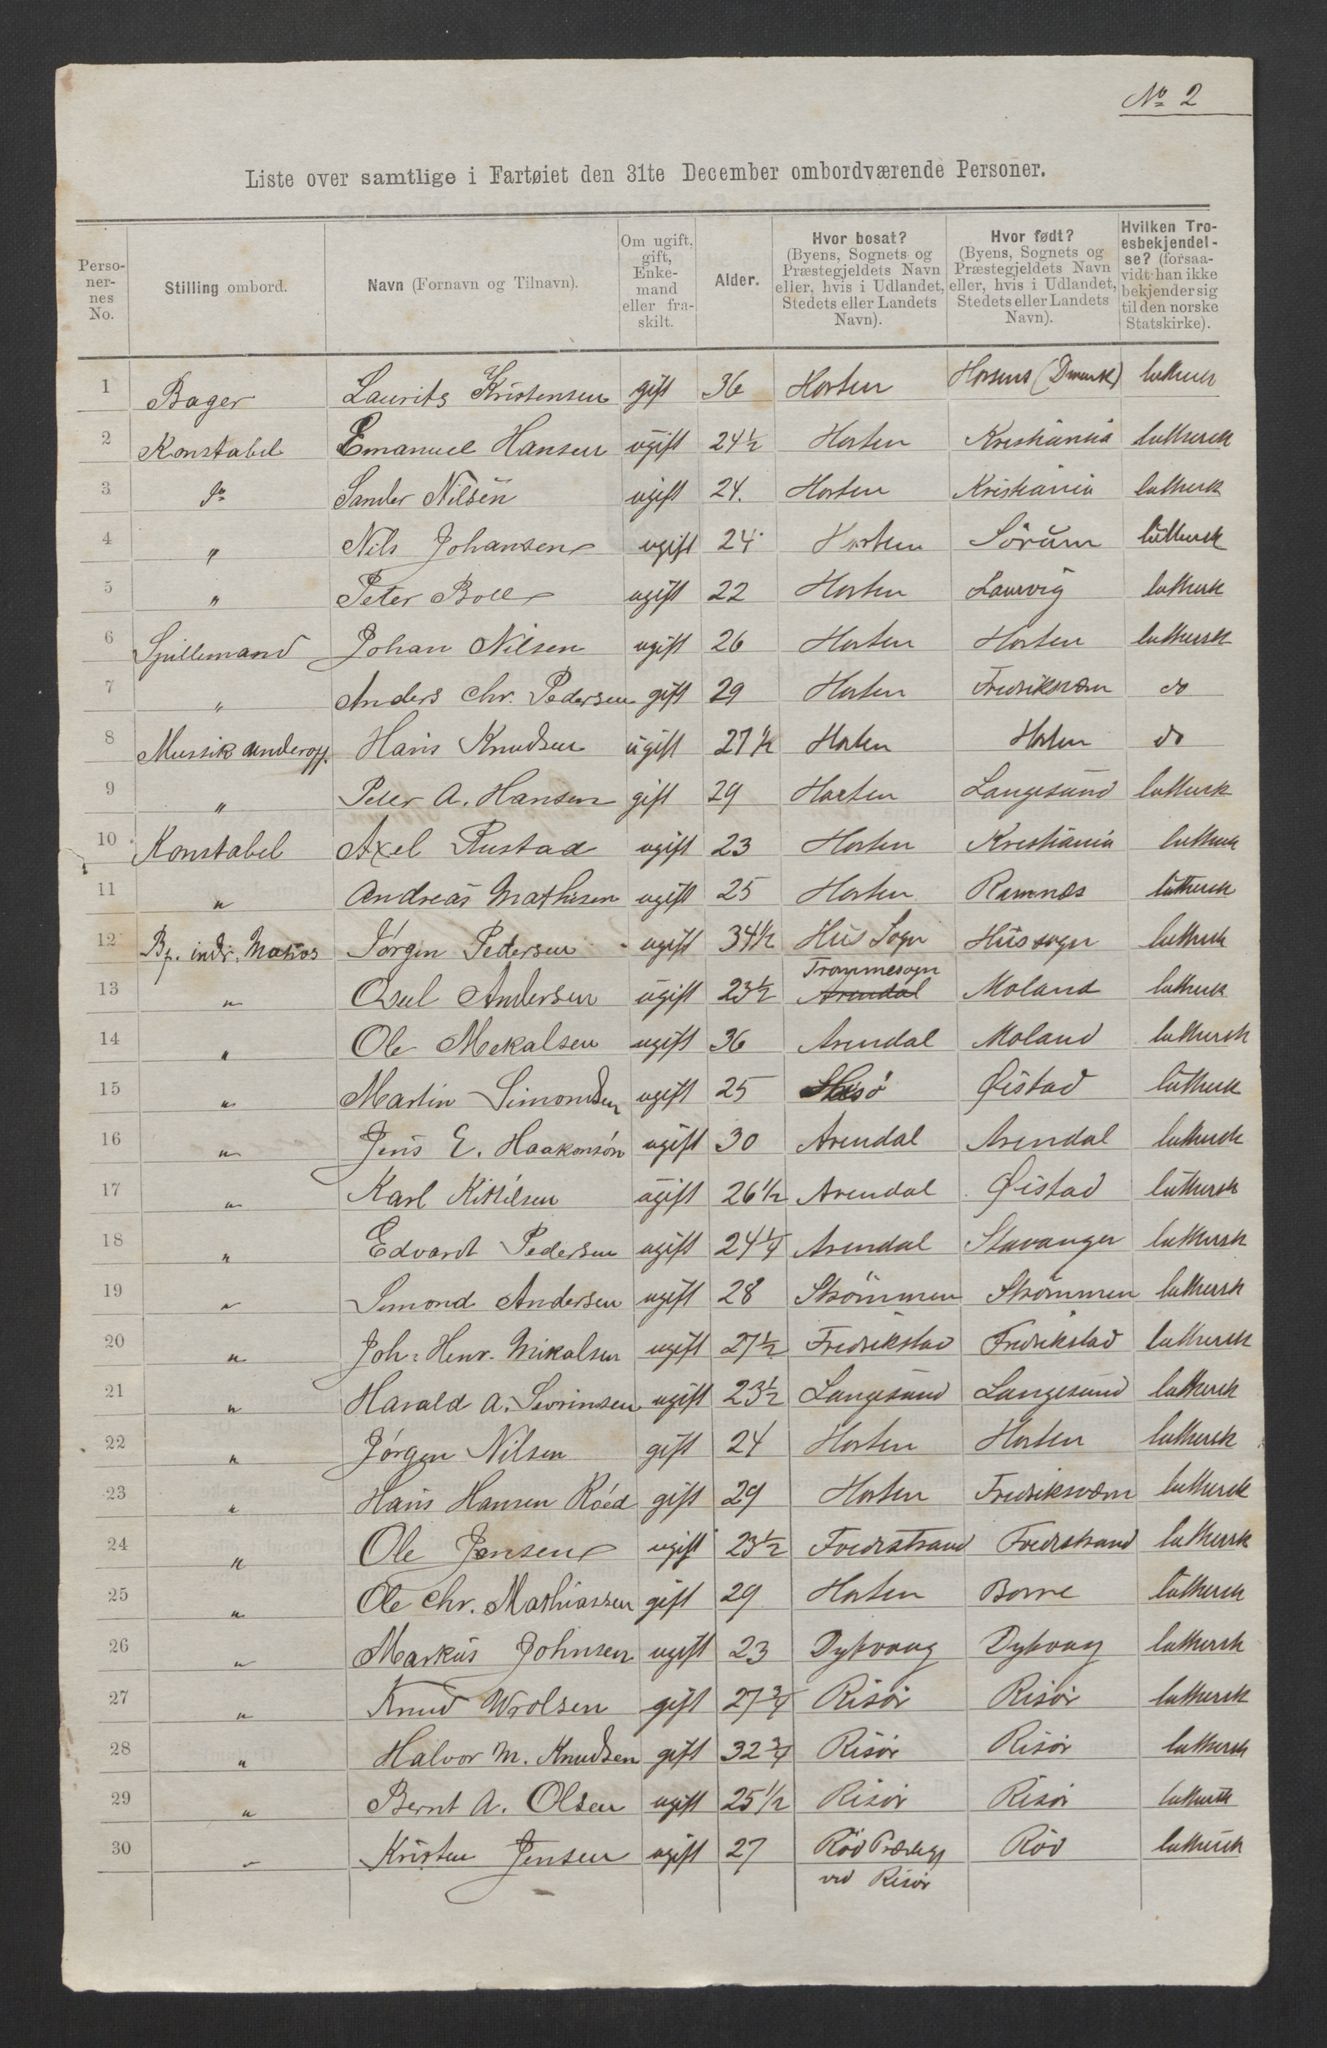 No 2
Liste over samtlige i Fartøiet den 31te December ombordværende Personer.
Perso-
ner-
nes
No.
Stilling ombord.
Navn (Fornavn og Tilnavn).
Om ugift,
gift,
Enke-
mand
eller fra-
skilt.
Alder.
Hvor bosat?
(Byens, Sognets og
Præstegjeldets Navn
eller, hvis i Udlandet,
Stedets eller Landets
Navn).
Hvor født?
(Byens, Sognets og
Præstegjeldets Navn
eller, hvis i Udlandet,
Stedets eller Landets
Navn).
Hvilken Tro-
esbekjendel-
se? (forsaa-
vidt han ikke
bekjender sig
til den norske
Statskirke).
1 Bager Laurits Kristensen gift 36 Horten Horsens (Dmark) luthersk
2 Konstabel Emanuel Hansen ugift 24½ Horten Kristiania luthersk
3 Do Sander Nilsen ugift 24. Horten Kristiania luthersk
4 " Nils Johansen ugift 24 Horten Sörum luthersk
5 " Peter Boll ugift 22 Horten Laurvig luthersk
6 Spillemand Johan Nilsen ugift 26 Horten Horten luthersk
7 " Anders Chr. Pedersen gift 29 Horten Fredriksværn do
8 Mussik underoff. Hans Knudsen ugift 27½ Horten Horten do
9 " Peter A. Hansen gift 29 Horten Langesund luthersk
10 Konstabel Axel Rustad ugift 23 Horten Kristiania luthersk
11 " Andreas Mathisen ugift 25 Horten Ramnæs luthersk
12 Bf. indr. Matros Jørgen Pedersen ugift 34½ Hus Sogn Hussogn luthersk
Trommesogn
13 " Osul Andersen ugift 23½ Arendal Moland luthersk
14 " Ole Mekalsen ugift 36 Arendal Moland luthersk
15 " Martin Simondsen ugift 25 Øistad luthersk
16 " Jens E. Haakonsön ugift 30 Arendal Arendal luthersk
17 " Karl Kittilsen ugift 26½ Arendal Øistad luthersk
18 " Edvardt Pedersen ugift 24¼ Arendal Stavanger luthersk
19 " Simond Andersen ugift 28 Strömmen Strömmen luthersk
20 " Joh: Henr. Mikalsen ugift 27½ Fredrikstad Fredrikstad luthersk
21 " Harald A. Sevrinsen ugift 23½ Langesund Langesund luthersk
22 " Jørgen Nilsen gift 24 Horten Horten luthersk
23 " Hans Hansen Röed gift 29 Horten Fredriksværn luthersk
24 " Ole Jensen ugift 23½ Fvedestrand Fvedestrand luthersk
25 " Ole Chr. Mathiassen gift 29 Horten Borre luthersk
26 " Markus Johnsen ugift 23 Dybvaag Dybvaag luthersk
27 " Knud Wrolsen gift 27¾ Risör Risör luthersk
28 " Halvor M. Knudsen gift 32¾ Risör Risör luthersk
29 " Bernt A. Olsen ugift 25½ Risör Risör luthersk
30 " Kristen Jensen ugift 27 Röd Röd luthersk
ved Risör